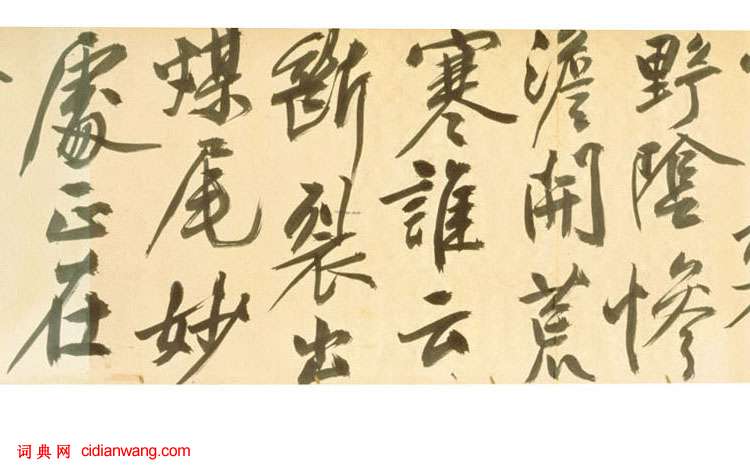 野陰慘
澹開荒
寒誰云
斷裂出
煤尾妙
處正在
词典网 cidianwang.com